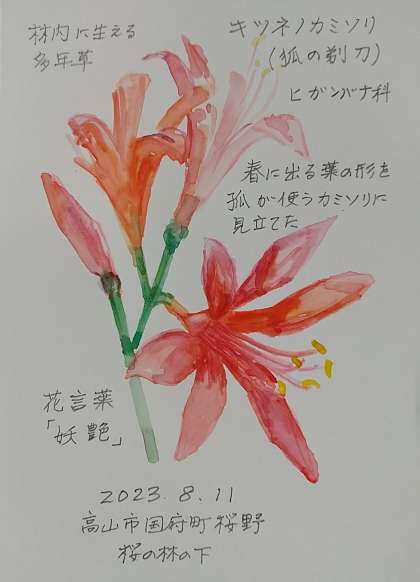 林内に生える
多年草
キツネノカミソリ
(狐の剃刀)
ヒガンバナ科
春に出る葉の形を
狐が使うカミソリに
見立てた
花言葉
「妖艶」
2023.8.11
高山市国府町桜野
桜の林の下